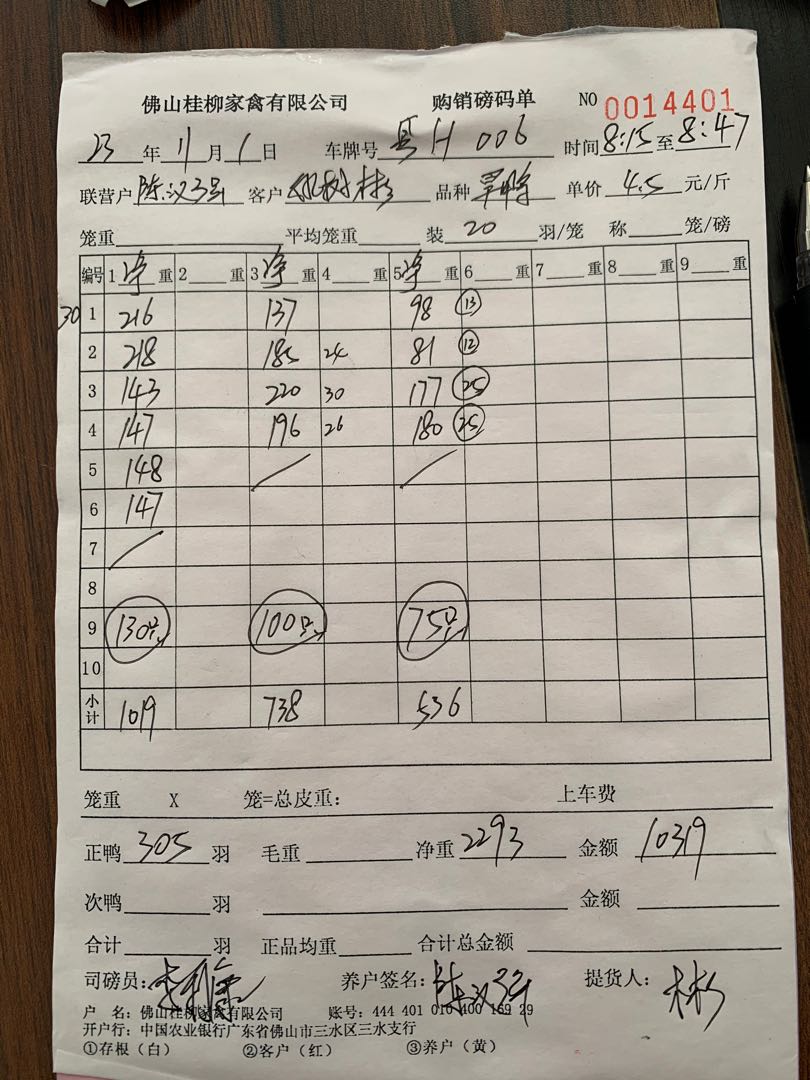 佛山桂柳家禽有限公司 购销磅码单 NO 0014401
23 年 11 月 1 日 车牌号 H 006 时间 8:15 至 8:47
联营户 陈汉 客户 树彬 品种 单价 4.5 元/斤
笼重 平均笼重 装 20 羽/笼 称 笼/磅
编号 1 净 重 2 重 3 净 重 4 重 5 净 重 6 重 7 重 8 重 9 重
30 1 216 137 98 13
2 218 185 24 81 12
3 143 220 30 177 25
4 147 196 26 180 25
5 148
6 147
7
8
9 130只 100只 75只
10
小计 1019 738 536
笼重 X 笼=总皮重: 上车费
正鸭 305 羽 毛重 净重 2293 金额 10319
次鸭 羽 金额
合计 羽 正品均重 合计总金额
司磅员: 养户签名: 陈汉 提货人: 彬
户 名: 佛山桂柳家禽有限公司 账号: 444 401 010 400 169 29
开户行: 中国农业银行广东省佛山市三水区三水支行
①存根（白） ②客户（红） ③养户（黄）